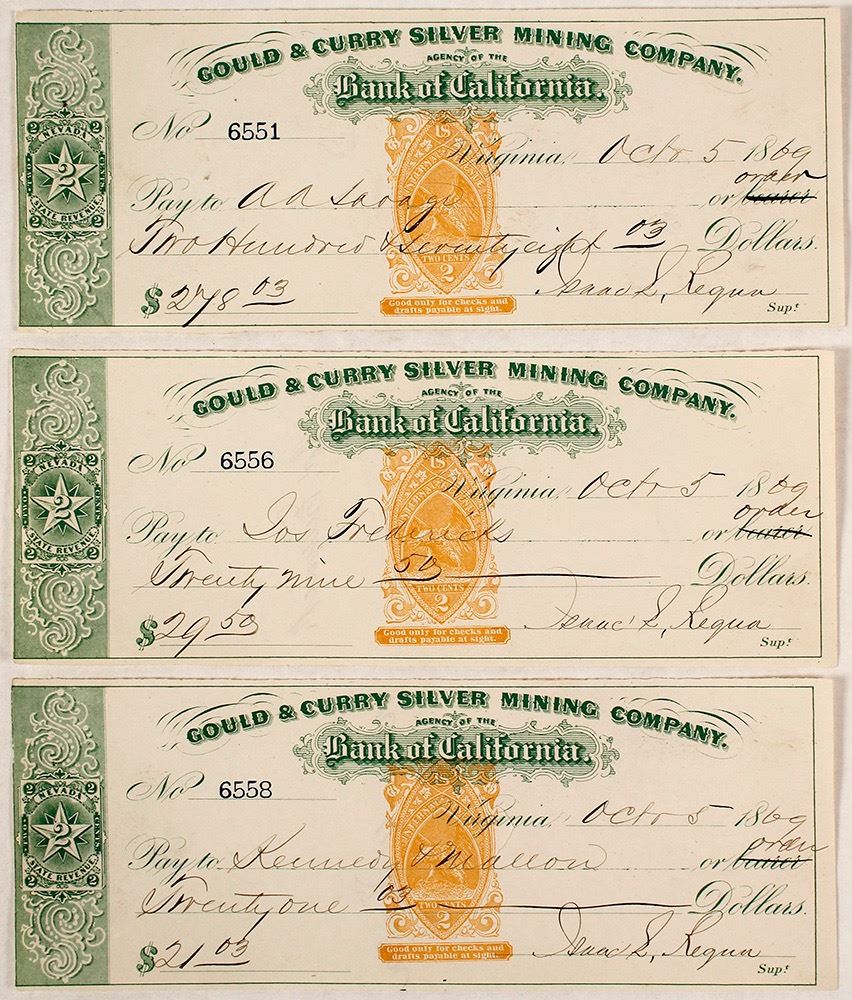 GOULD & CURRY SILVER MINING COMPANY.
AGENCY OF THE
Bank of California.
NEVADA
2 2
TWO 2 CENTS
STATE REVENUE
2 2
No 6551
US
INTERNAL REVENUE
Virginia, Octo 5 1869
order
Pay to A A Savage or bearer
Two Hundred & seventy eight 03 Dollars.
TWO CENTS
2
$278 03
Good only for checks and
drafts payable at sight.
Isaac L. Requa
Supt
GOULD & CURRY SILVER MINING COMPANY.
AGENCY OF THE
Bank of California.
NEVADA
2 2
TWO 2 CENTS
STATE REVENUE
2 2
No 6556
US
INTERNAL REVENUE
Virginia, Octo 5 1869
order
Pay to Jos Fredericks or bearer
Twenty nine 50 Dollars.
TWO CENTS
2
$29 50
Good only for checks and
drafts payable at sight.
Isaac L. Requa
Supt
GOULD & CURRY SILVER MINING COMPANY.
AGENCY OF THE
Bank of California.
NEVADA
2 2
TWO 2 CENTS
STATE REVENUE
2 2
No 6558
US
INTERNAL REVENUE
Virginia, Octo 5 1869
order
Pay to Kennedy & Mallon or bearer
Twenty one 03 Dollars.
TWO CENTS
2
$21 03
Good only for checks and
drafts payable at sight.
Isaac L. Requa
Supt